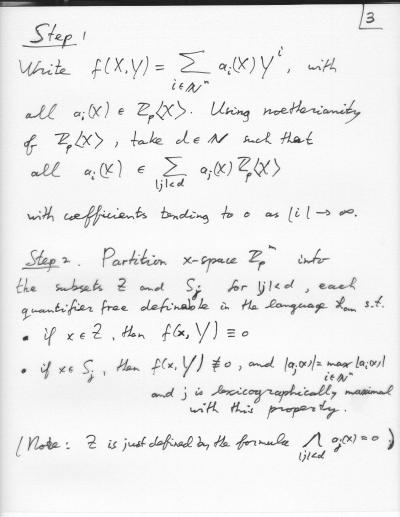 3
Step 1
Write f(X,Y) = ∑_{i∈ℕⁿ} a_i(X) Y^i, with
all a_i(X) ∈ ℤ_p⟨X⟩. Using noetherianity
of ℤ_p⟨X⟩, take d ∈ ℕ such that
all a_i(X) ∈ ∑_{|j|<d} a_j(X) ℤ_p⟨X⟩
with coefficients tending to 0 as |i| → ∞.
Step 2. Partition x-space ℤ_p^m into
the subsets Z and S_j for |j|<d, each
quantifier free definable in the language L_an s.t.
• if x ∈ Z, then f(x, Y) ≡ 0
• if x ∈ S_j, then f(x, Y) ≢ 0, and |a_j(x)| = max_{i∈ℕⁿ} |a_i(x)|
and j is lexicographically maximal
with this property.
(Note: Z is just defined by the formula ⋀_{|j|<d} a_j(x) = 0.)